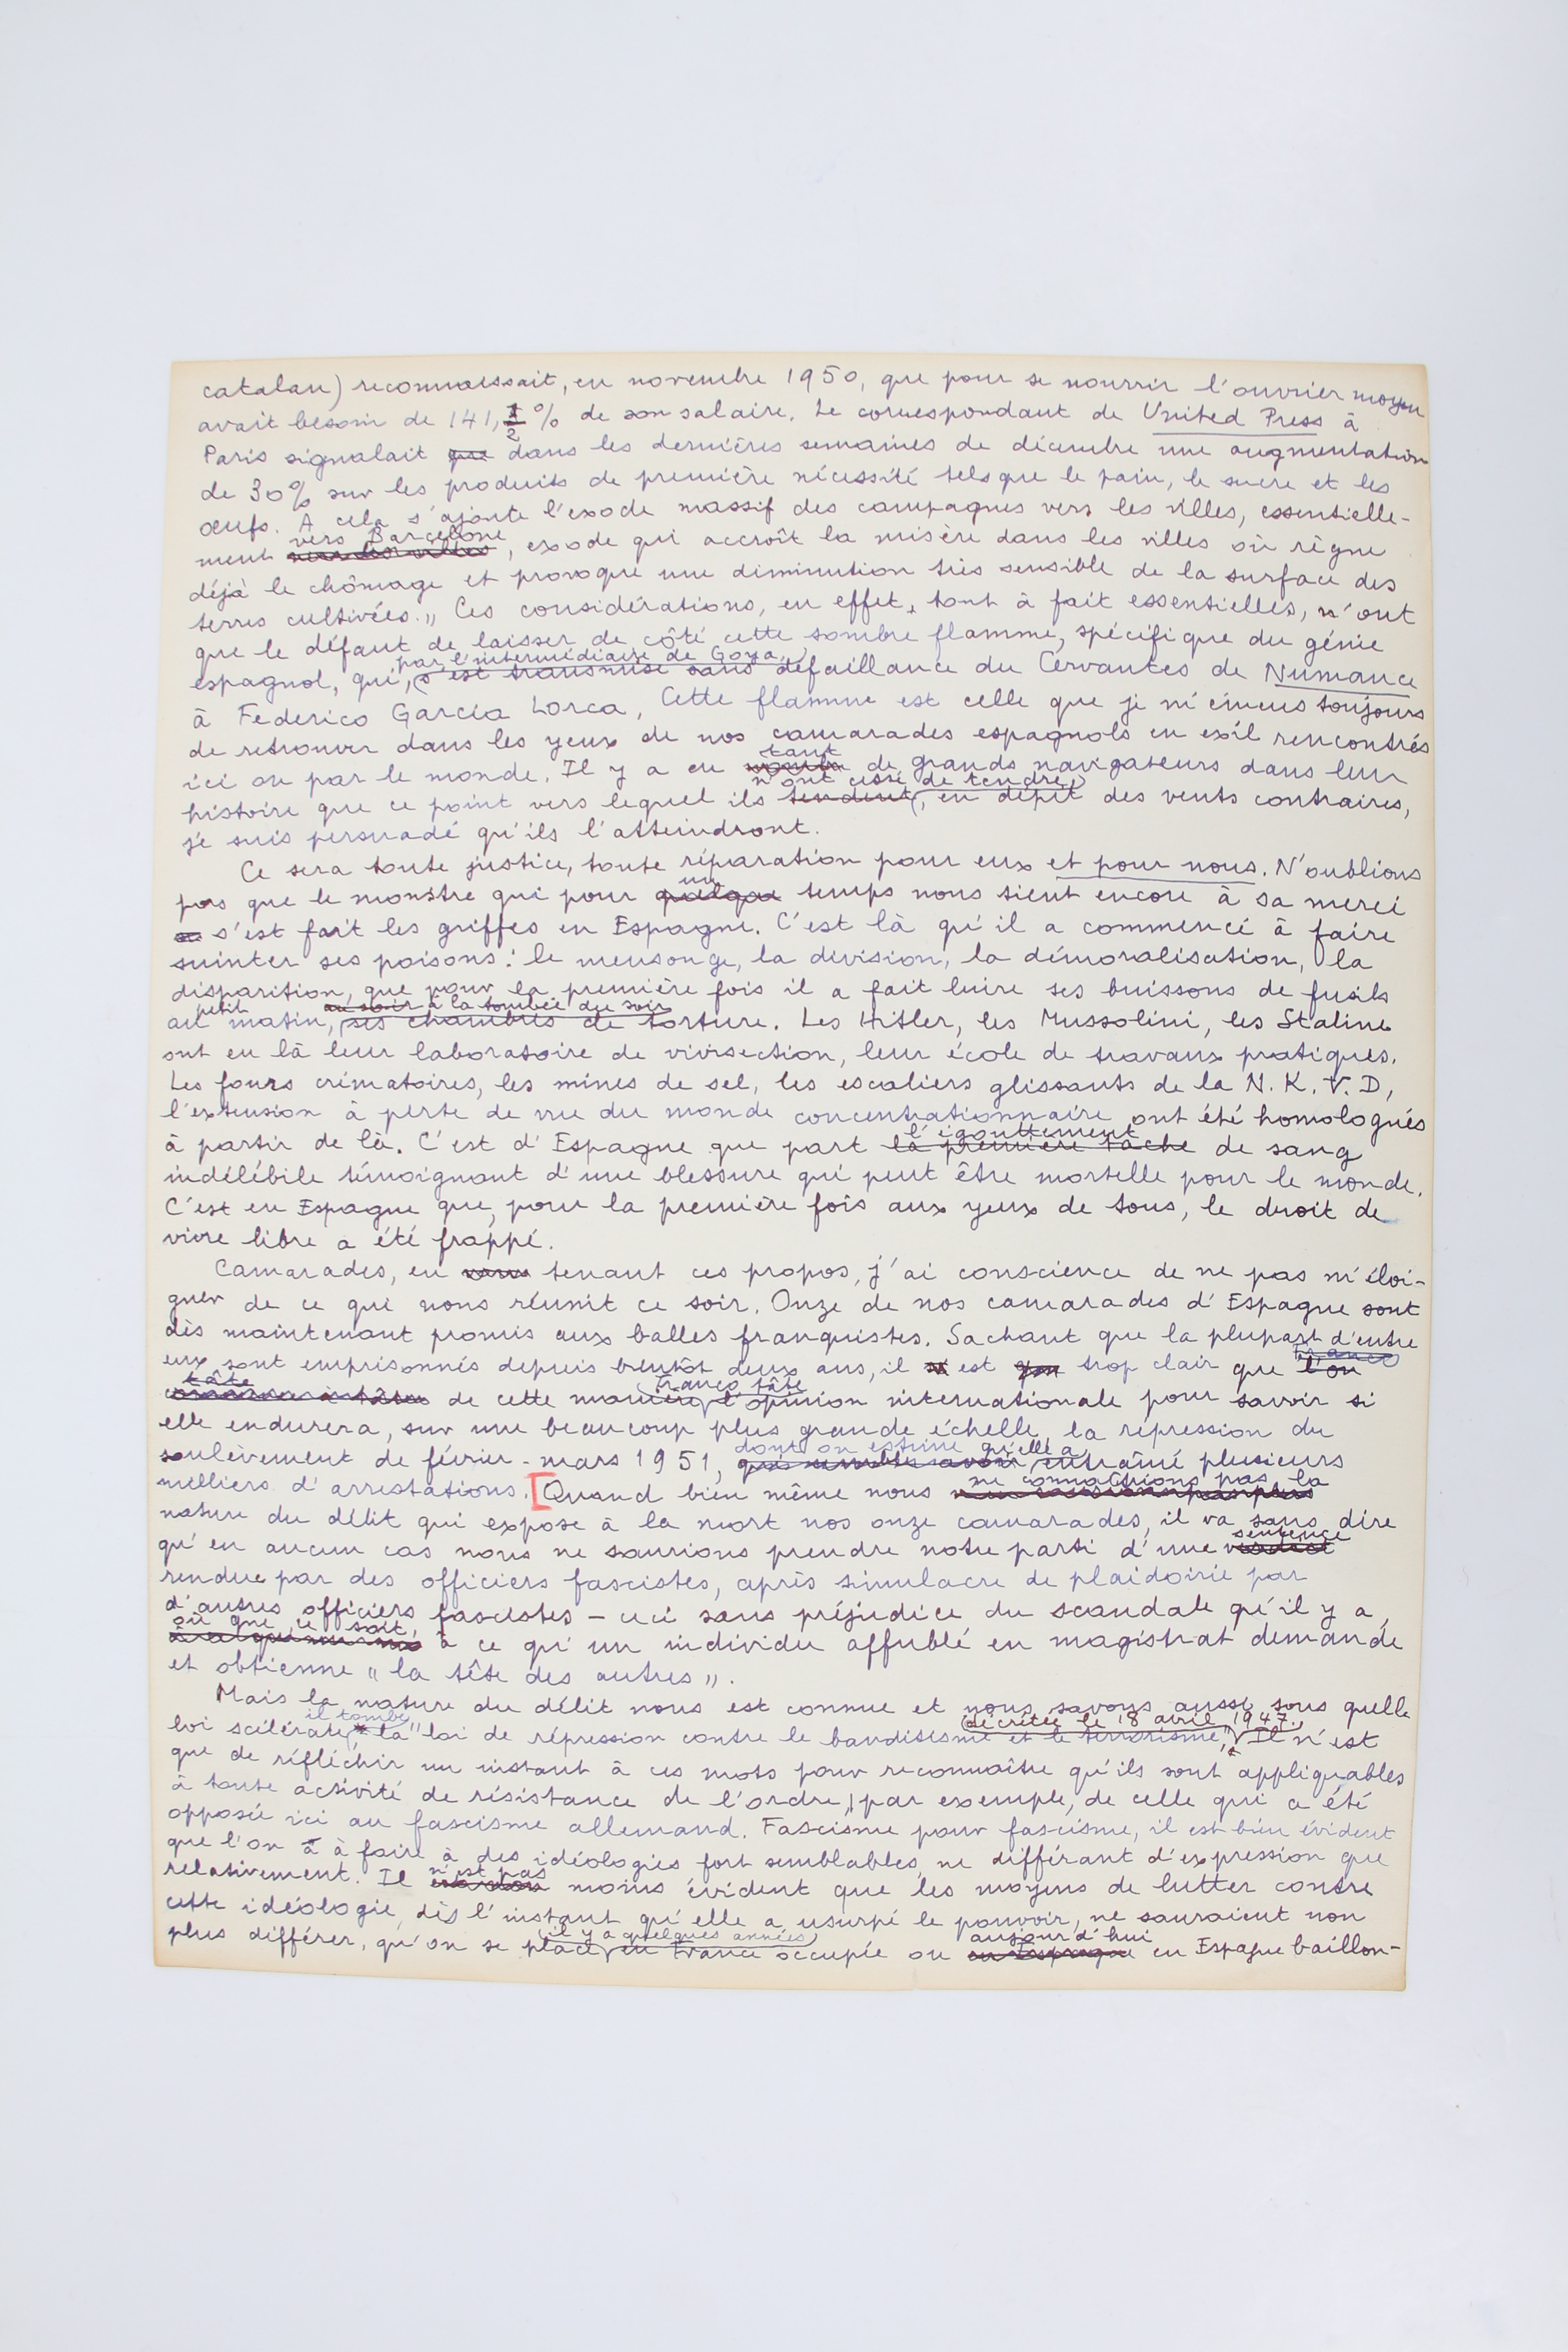 catalan) reconnaissait, en novembre 1950, que pour se nourrir l'ouvrier moyen
avait besoin de 141, 1/2 % de son salaire. Le correspondant de United Press à
Paris signalait que dans les dernières semaines de décembre une augmentation
de 30% sur les produits de première nécessité tels que le pain, le sucre et les
œufs. A cela s'ajoute l'exode massif des campagnes vers les villes, essentielle-
vers Barcelone
ment vers les villes, exode qui accroît la misère dans les villes où règne
déjà le chômage et provoque une diminution très sensible de la surface des
terres cultivées." Ces considérations, en effet, tout à fait essentielles, n'ont
que le défaut de laisser de côté cette sombre flamme, spécifique du génie
par l'intermédiaire de Goya,
espagnol, qui, s'est transmise sans défaillance du Cervantes de Numance
à Federico García Lorca. Cette flamme est celle que je m'émeus toujours
de retrouver dans les yeux de nos camarades espagnols en exil rencontrés
tant
ici ou par le monde. Il y a eu de grands navigateurs dans leur
n'ont cessé de tendre,
histoire que ce point vers lequel ils tendent, en dépit des vents contraires,
je suis persuadé qu'ils l'atteindront.
Ce sera toute justice, toute réparation pour eux et pour nous. N'oublions
un
pas que le monstre qui pour quelque temps nous tient encore à sa merci
se s'est fait les griffes en Espagne. C'est là qu'il a commencé à faire
suinter ses poisons : le mensonge, la division, la démoralisation, la
disparition, que pour la première fois il a fait luire ses buissons de fusils
petit au soir à la tombée du soir
au matin, ses chambres de torture. Les Hitler, les Mussolini, les Staline
ont eu là leur laboratoire de vivisection, leur école de travaux pratiques.
Les fours crématoires, les mines de sel, les escaliers glissants de la N.K.V.D,
l'extension à perte de vue du monde concentrationnaire ont été homologués
l'égouttement
à partir de là. C'est d'Espagne que part la première tache de sang
indélébile témoignant d'une blessure qui peut être mortelle pour le monde.
C'est en Espagne que, pour la première fois aux yeux de tous, le droit de
vivre libre a été frappé.
Camarades, en vous tenant ces propos, j'ai conscience de ne pas m'éloi-
gner de ce qui nous réunit ce soir. Onze de nos camarades d'Espagne sont
dès maintenant promis aux balles franquistes. Sachant que la plupart d'entre
Franco
eux sont emprisonnés depuis bientôt deux ans, il est trop clair que l'on
tâte Franco tâte
commence à tâter de cette manière l'opinion internationale pour savoir si
elle endurera, sur une beaucoup plus grande échelle, la répression du
dont on estime qu'elle a
soulèvement de février-mars 1951, qui semble avoir entraîné plusieurs
ne connaîtrions pas la
milliers d'arrestations. [Quand bien même nous
nature du délit qui expose à la mort nos onze camarades, il va sans dire
sentence
qu'en aucun cas nous ne saurions prendre notre parti d'une verdict
rendue par des officiers fascistes, après simulacre de plaidoirie par
d'autres officiers fascistes – ceci sans préjudice du scandale qu'il y a,
où que ce soit,
à ce qu'un individu affublé en magistrat demande
et obtienne "la tête des autres".
Mais la nature du délit nous est connue et nous savons aussi sous quelle
il tombe décrétée le 18 avril 1947.
loi scélérate, la "loi de répression contre le banditisme et le terrorisme," Il n'est
que de réfléchir un instant à ces mots pour reconnaître qu'ils sont appliquables
à toute activité de résistance de l'ordre, par exemple, de celle qui a été
opposée ici au fascisme allemand. Fascisme pour fascisme, il est bien évident
que l'on a à faire à des idéologies fort semblables, ne différant d'expression que
n'est pas
relativement. Il moins évident que les moyens de lutter contre
cette idéologie, dès l'instant qu'elle a usurpé le pouvoir, ne sauraient non
il y a quelques années aujourd'hui
plus différer, qu'on se place en France occupée ou en Espagne en Espagne baillon-